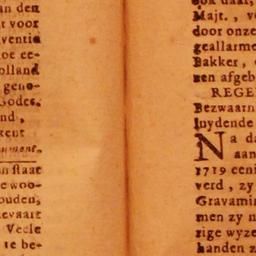 an den
t voor
ventia
oe ee-
olland
geno-
Godes.
nd,
ument.
an staat
e woo-
ouden,
evaart
Veele
te be-
ook daar,
Majt., v
door onze
geallarme
Bakker,
nen afgeb
REGE
Bezwaarn
luydende
Na da
aan
1719 ceni
verd, zy
Gravamin
men zy n
rige wyze
handen z